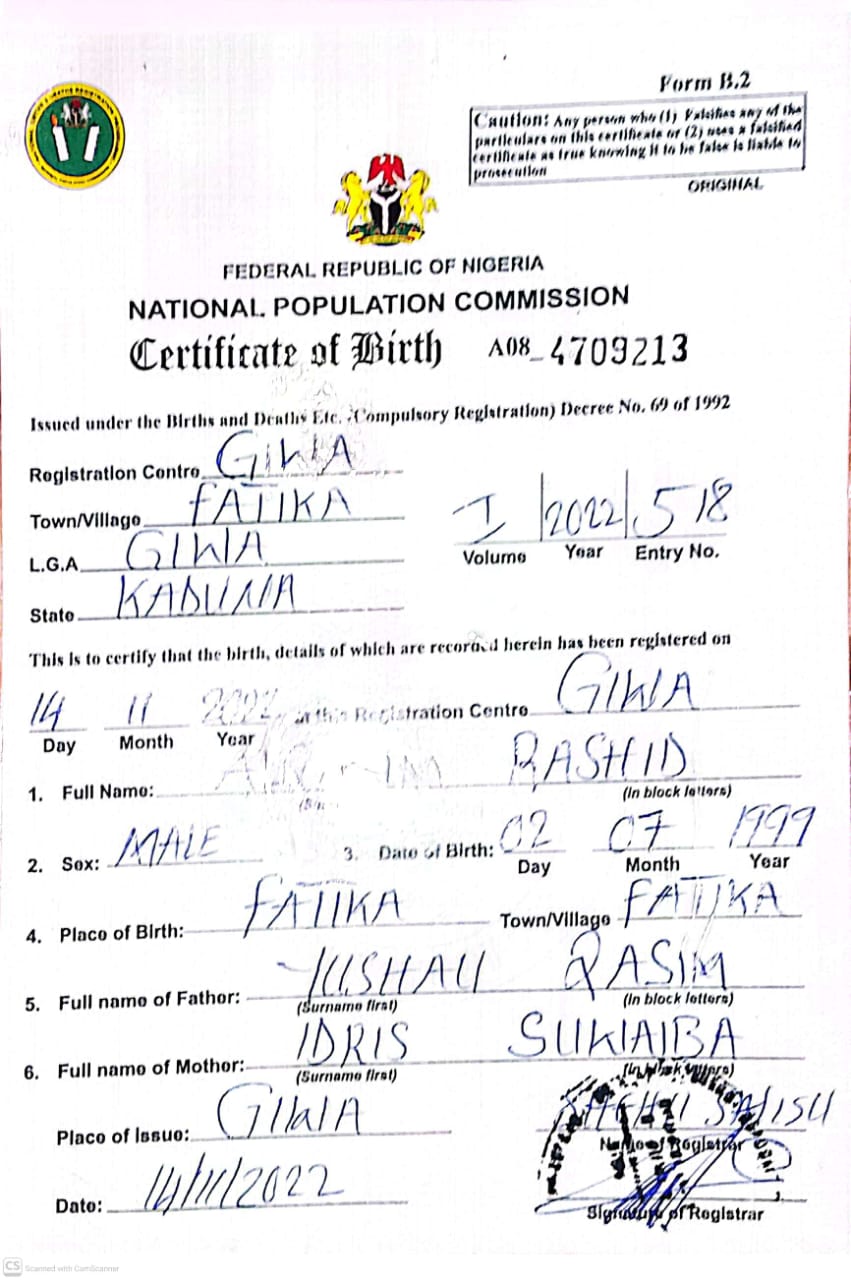 Form B.2
Caution: Any person who (1) Falsifies any of the
particulars on this certificate or (2) uses a falsified
certificate as true knowing it to be false is liable to
prosecution
ORIGINAL
FEDERAL REPUBLIC OF NIGERIA
NATIONAL POPULATION COMMISSION
Certificate of Birth A08_4709213
Issued under the Births and Deaths Etc. (Compulsory Registration) Decree No. 69 of 1992
Registration Centre GIWA
Town/Village FATIKA
I 2022 518
L.G.A GIWA
Volume Year Entry No.
State KADUNA
This is to certify that the birth, details of which are recorded herein has been registered on
14 11 2022 at this Registration Centre GIWA
Day Month Year
1. Full Name: RASHID
(In block letters)
2. Sex: MALE 3. Date of Birth: 02 07 1999
Day Month Year
4. Place of Birth: FATIKA Town/Village FATIKA
5. Full name of Father: YUSHAU QASIM
(Surname first) (In block letters)
6. Full name of Mother: IDRIS SUWAIBA
(Surname first) (In block letters)
Place of Issue: GIWA SALISU
Name of Registrar
Date: 14/11/2022
Signature of Registrar
CS Scanned with CamScanner